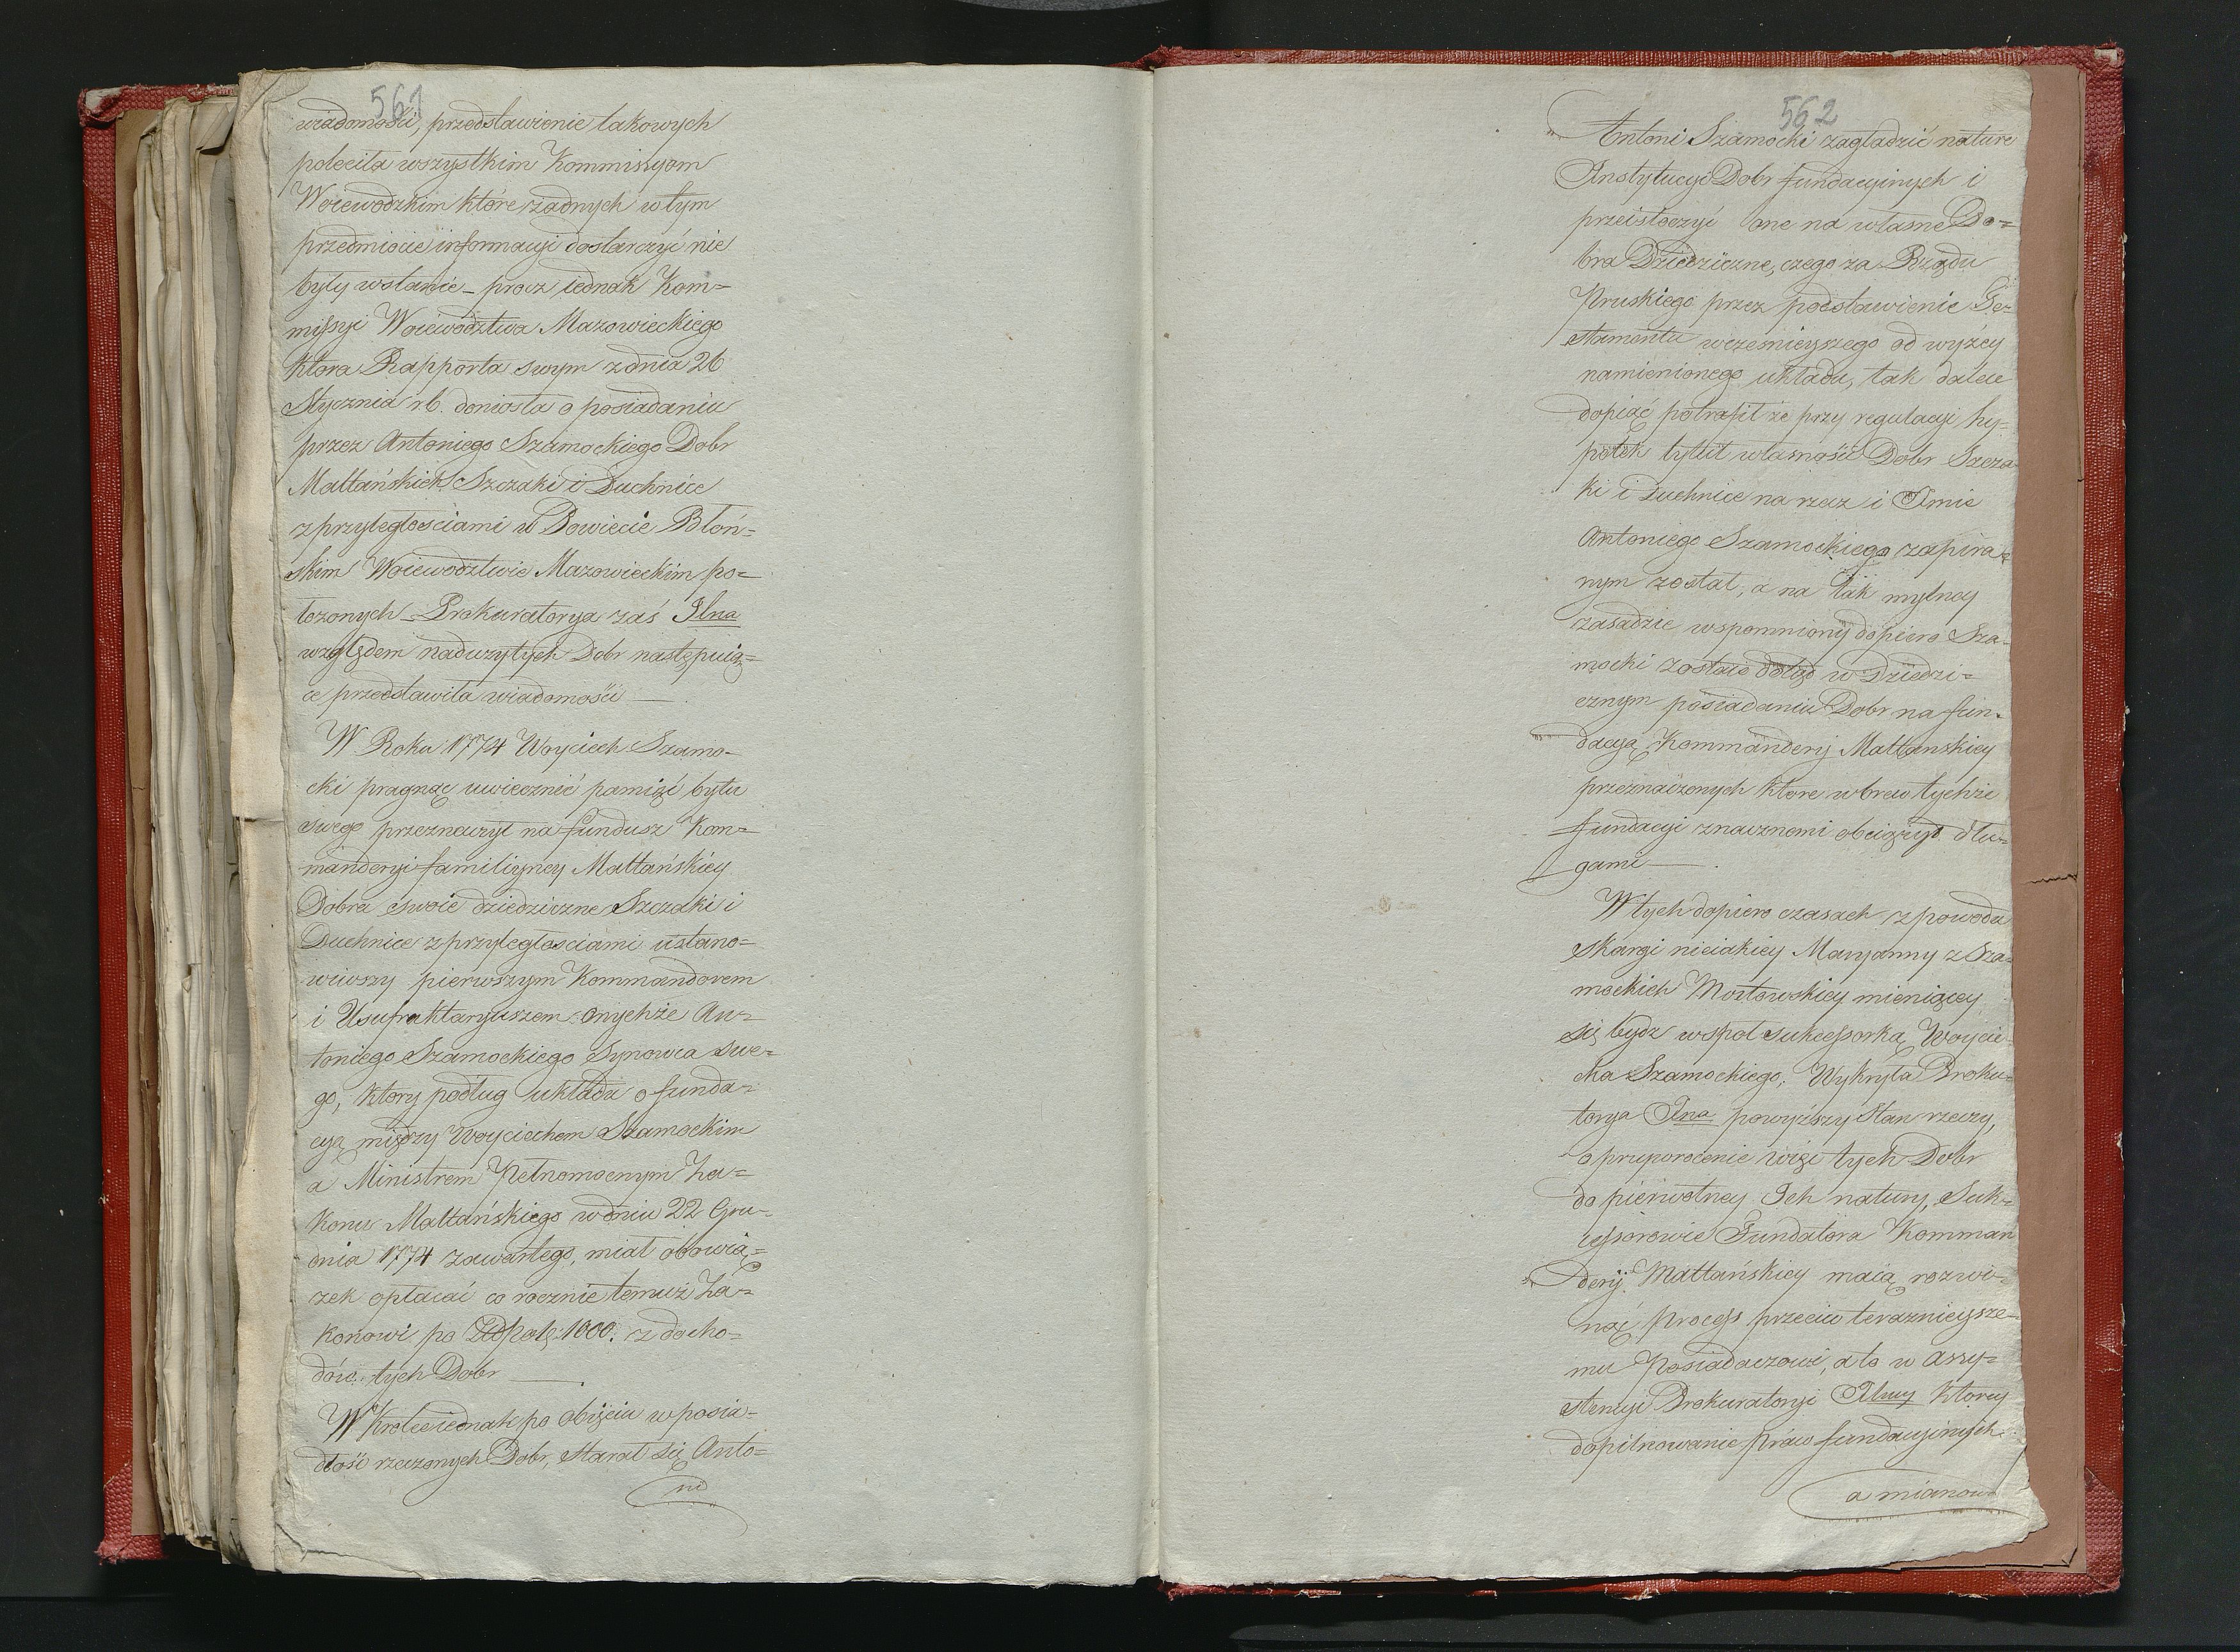 561
wiadomości, przedstawienie takowych
poleciła wszystkim Kommissyom
Woiewodzkim które żadnych w tym
przedmiocie informacyi dostarczyć nie
były wstanie – procz iednak Kom=
missyi Woiewództwa Mazowieckiego
Ktora Rapporta swym z dnia 26
Stycznia r b. doniosła o posiadaniu
przez Antoniego Szamockiego Dobr
Maltańskich Szczaki i Duchnice
z przyległościami w Powiecie Błoń=
skim Woiewodztwie Mazowieckim po=
łozonych – Prokuratorya zaś Jlna
względem nadużytych Dobr następuią=
ce przedstawiła wiadomości —
W Roku 1774 Woyciech Szamo=
cki pragnąc uwiecznić pamięć bytu
swego przeznaczył na fundusz Kom=
manderyi familiyney Maltańskiey
Dobra swoie dziedziczne Szczaki i
Duchnice z przyległosciami ustano=
wiwszy pierwszym Kommandorem
i Usufruktaryuszem onychże An=
toniego Szamockiego Synowca swe=
go, ktory podług układu o funda=
cyą między Woyciechem Szamockim
a Ministrem Pełnomocnym Za=
konu Maltańskiego w dniu 22 Gru=
dnia 1774 zawartego, miał obowią=
zek opłacać co rocznie temuż Za=
konowi po Zł Pols. 1000. z docho=
dów tych Dobr —
W Krotce iednak po obięciu w posia=
dłość rzeczonych Dobr, starał się Anto=
ni
562
Antoni Szamocki zagładzić nature
Instytucyi Dobr fundacyinych i
przeistoczyć one na własne Do=
bra Dziedziczne, czego za Rządu
Pruskiego przez podstawienie Te=
stamentu wcześnieyszego od wyżey
namienionego układu, tak dalece
dopiąć potrafił że przy regulacyi hy=
potek tytuł własność Dobr Szcza
ki i Duchnice na rzecz i Imie
Antoniego Szamockiego zapisa=
nym został, a na tak mylney
zasadzie wspomniony dopiero Sza=
mocki zostaie dotąd w Dziedzi=
cznym posiadaniu Dobr na fun=
dacyą Kommanderij Maltanskiey
przeznaczonych ktore wbrew tychże
fundacyi znacznemi obciążył dłu=
gami —
W tych dopiero czasach z powodu
skargi nieiakiey Maryanny z Sza=
mockich Mostowskiey mieniącey
się bydz wspoł sukcessorką Woycie=
cha Szamockiego, Wykryła Proku=
torya Jlna powyższy stan rzeczy,
o przywrocenie więc tych Dobr
do pierwotney Jch natury, Suk=
cessorowie Fundatora Komman
derij Maltańskiey maią rozwi=
nąć process przeciw teraznieysze=
mu Posiadaczowi, a to w Assy=
stencyi Prokuratoryi Jlney ktorey
dopilnowanie praw fundacyinych
a mianowi